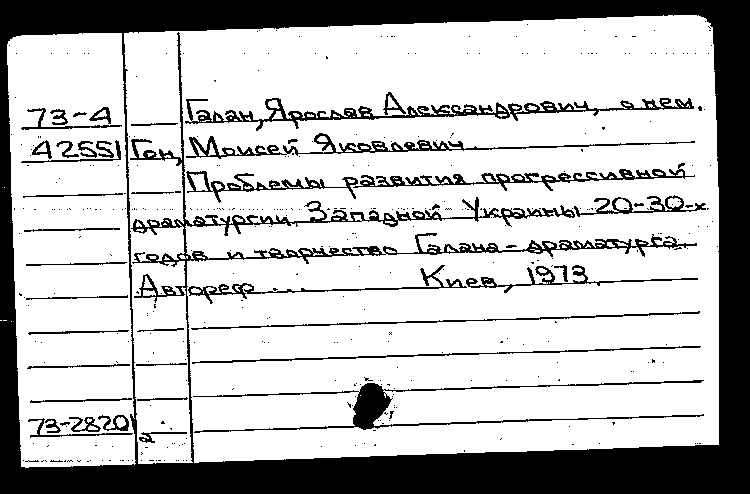 73-4 Галан, Ярослав Александрович, о нем.
42551 Гон, Моисей Яковлевич.
Проблемы развития прогрессивной
драматургии Западной Украины 20-30-х
годов и творчество Галана-драматурга.
Автореф... Киев, 1973.
73-2820